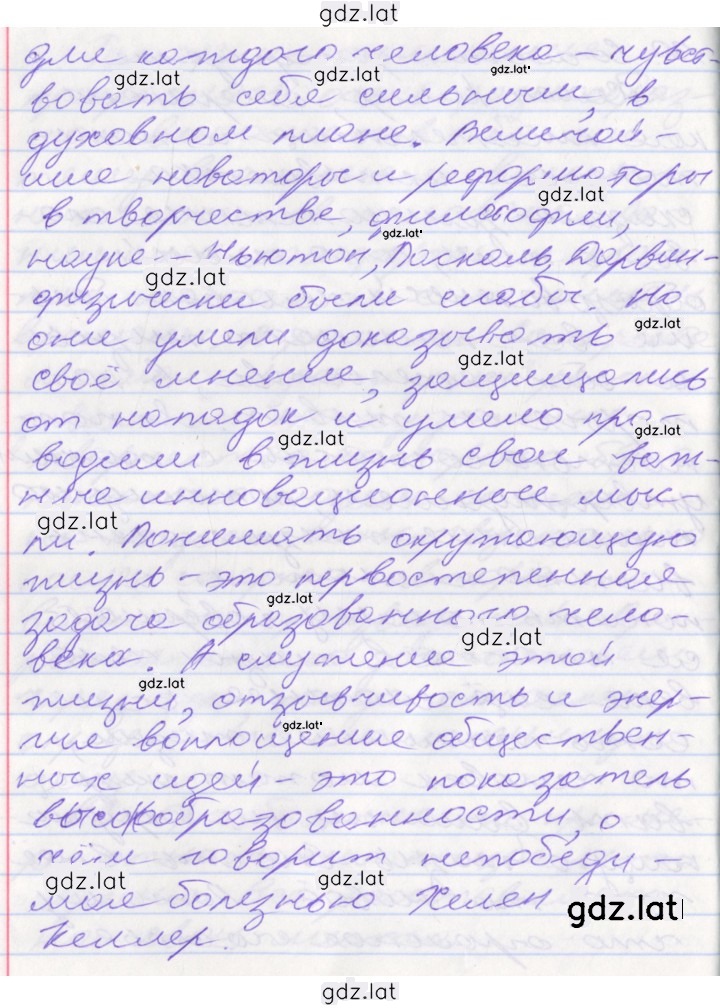 gdz.lat
для каждого человека – чувст-
gdz.lat gdz.lat gdz.lat
вовать себя сильным, в
духовном плане. Величай-
шие новаторы и реформаторы
gdz.lat
в творчестве, философии,
gdz.lat
науке – Ньютон, Паскаль, Дарвин-
gdz.lat
физически были слабы. Но
gdz.lat
они умели доказывать
gdz.lat
своё мнение, защищались
от нападок и умело про-
gdz.lat gdz.lat
водили в жизнь свои важ-
ные инновационные мыс-
gdz.lat
ли. Понимать окружающую
жизнь – это первостепенная
gdz.lat
задача образованного чело-
gdz.lat
века. А служение этой
gdz.lat
жизни, отзывчивость и энер-
gdz.lat
гие воплощение обществен-
ных идей – это показатель
высокообразованности, о
чём говорит непобеди-
gdz.lat gdz.lat
мая болезнью Хелен
gdz.lat
Келлер.
gdz.lat